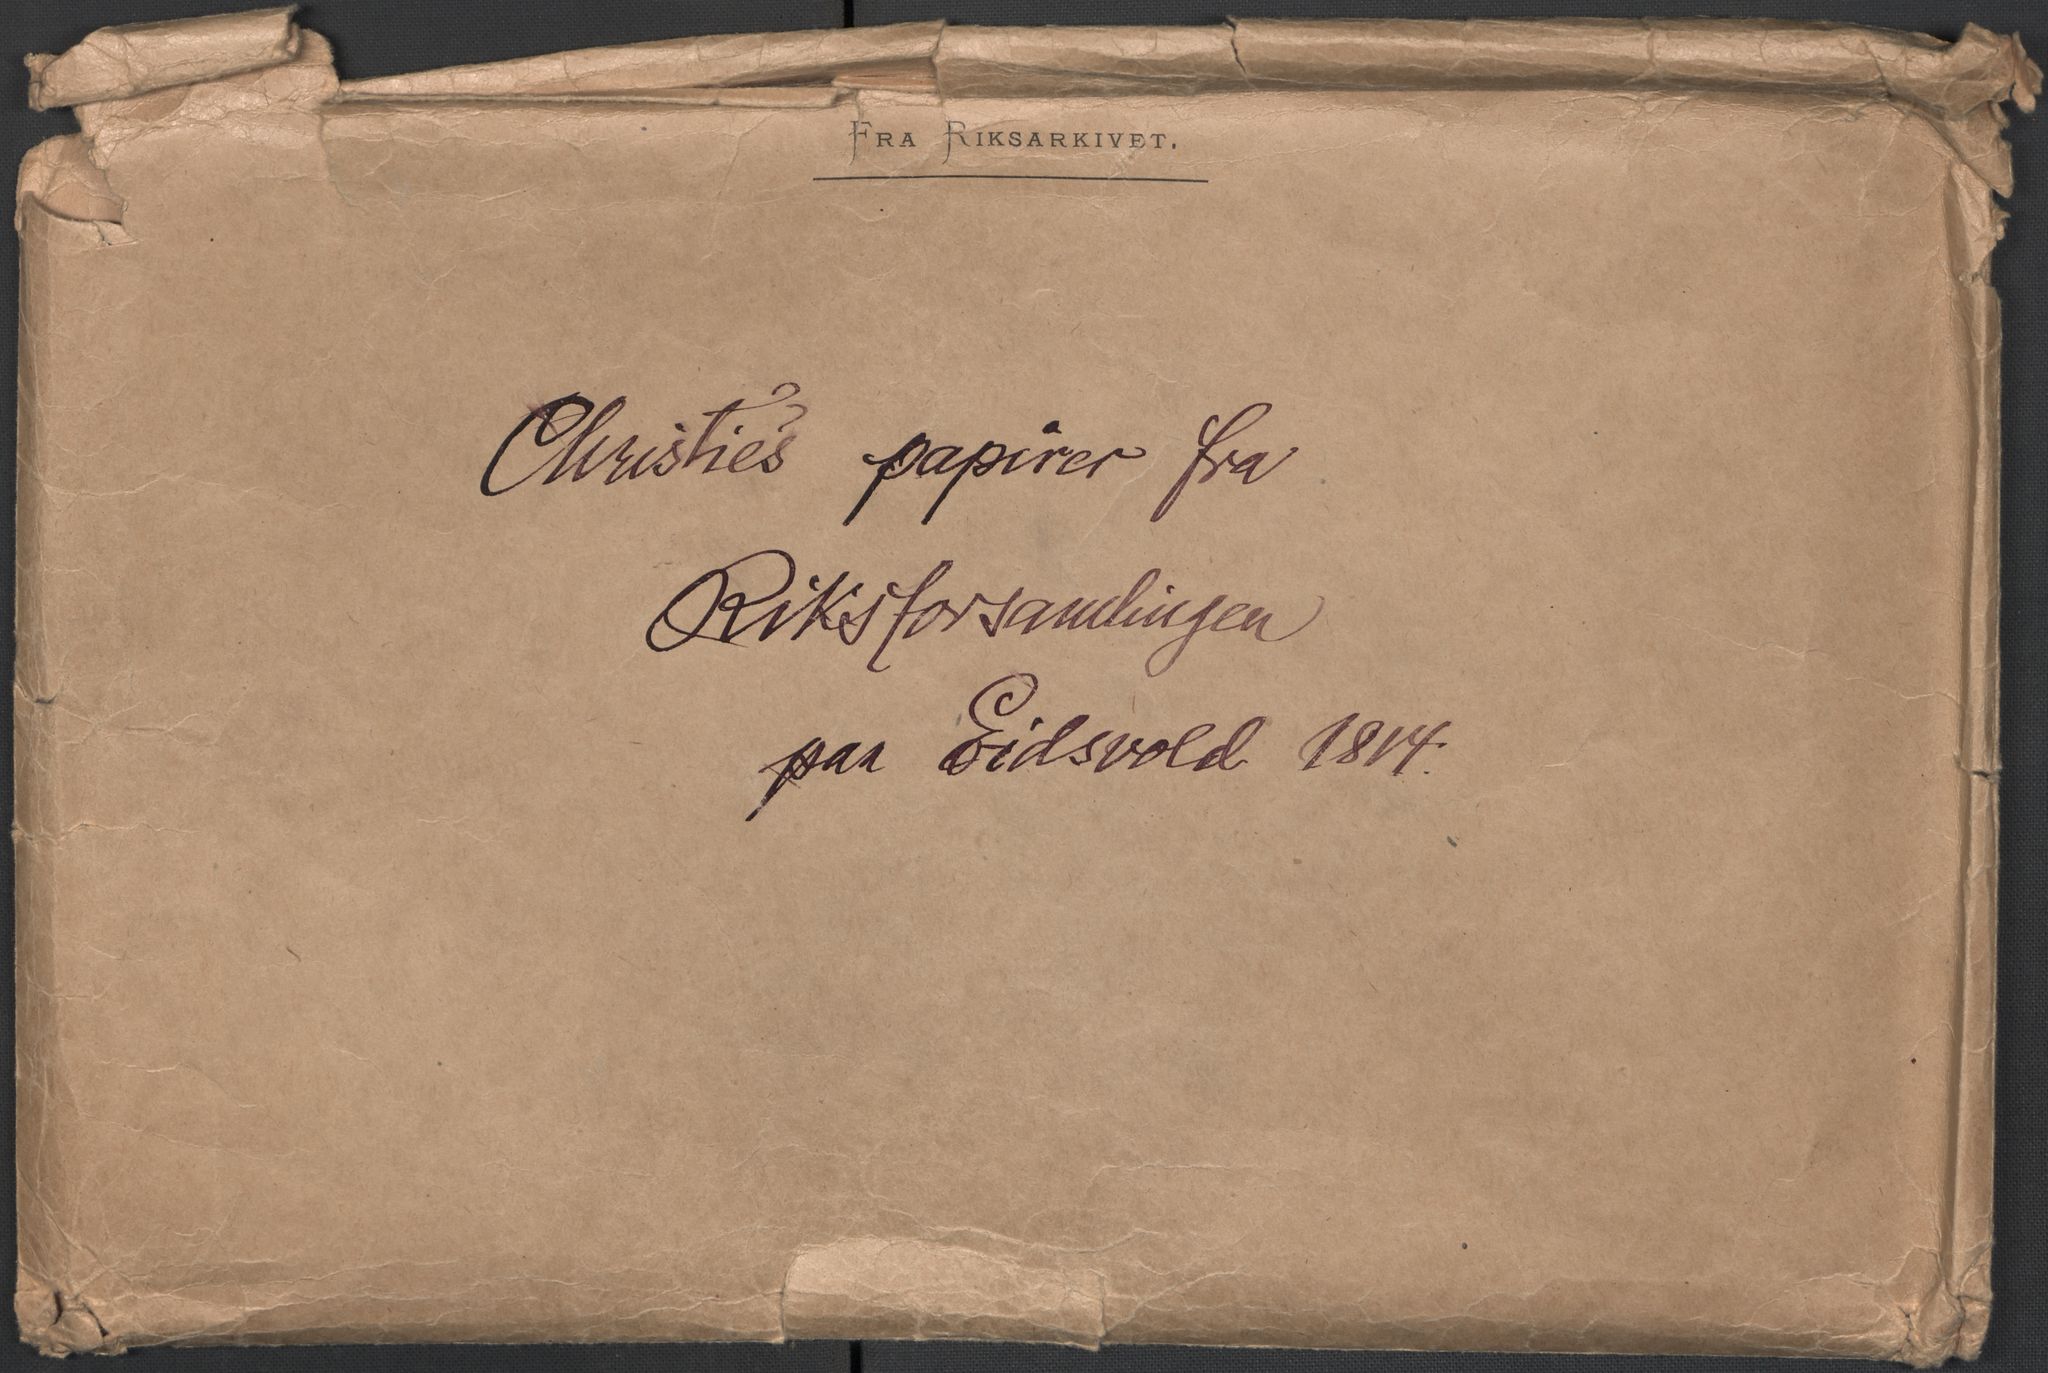 FRA RIKSARKIVET.
Christie's papirer fra
Riksforsamlingen
paa Eidsvold 1814.